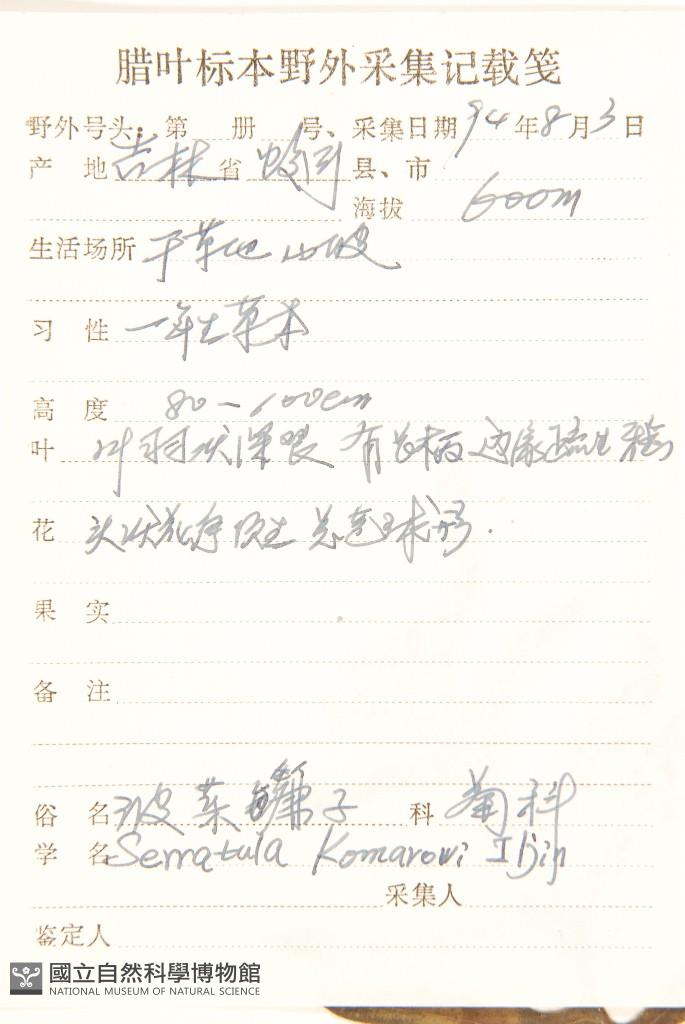 腊叶标本野外采集记载笺
野外号头:第 册 号、采集日期94年8月3日
产 地 吉林省 蛟河 县、市
海拔 600m
生活场所 干草地 山坡
习 性 一年生草本
高 度 80-100cm
叶 叶羽状深裂 有长柄 边缘疏生
花 头状花序顶生 总苞球形.
果 实
备 注
俗 名 子 科 菊科
学 名 Serratula Komarovi Iljin
采集人
鉴定人
國立自然科學博物館
NATIONAL MUSEUM OF NATURAL SCIENCE